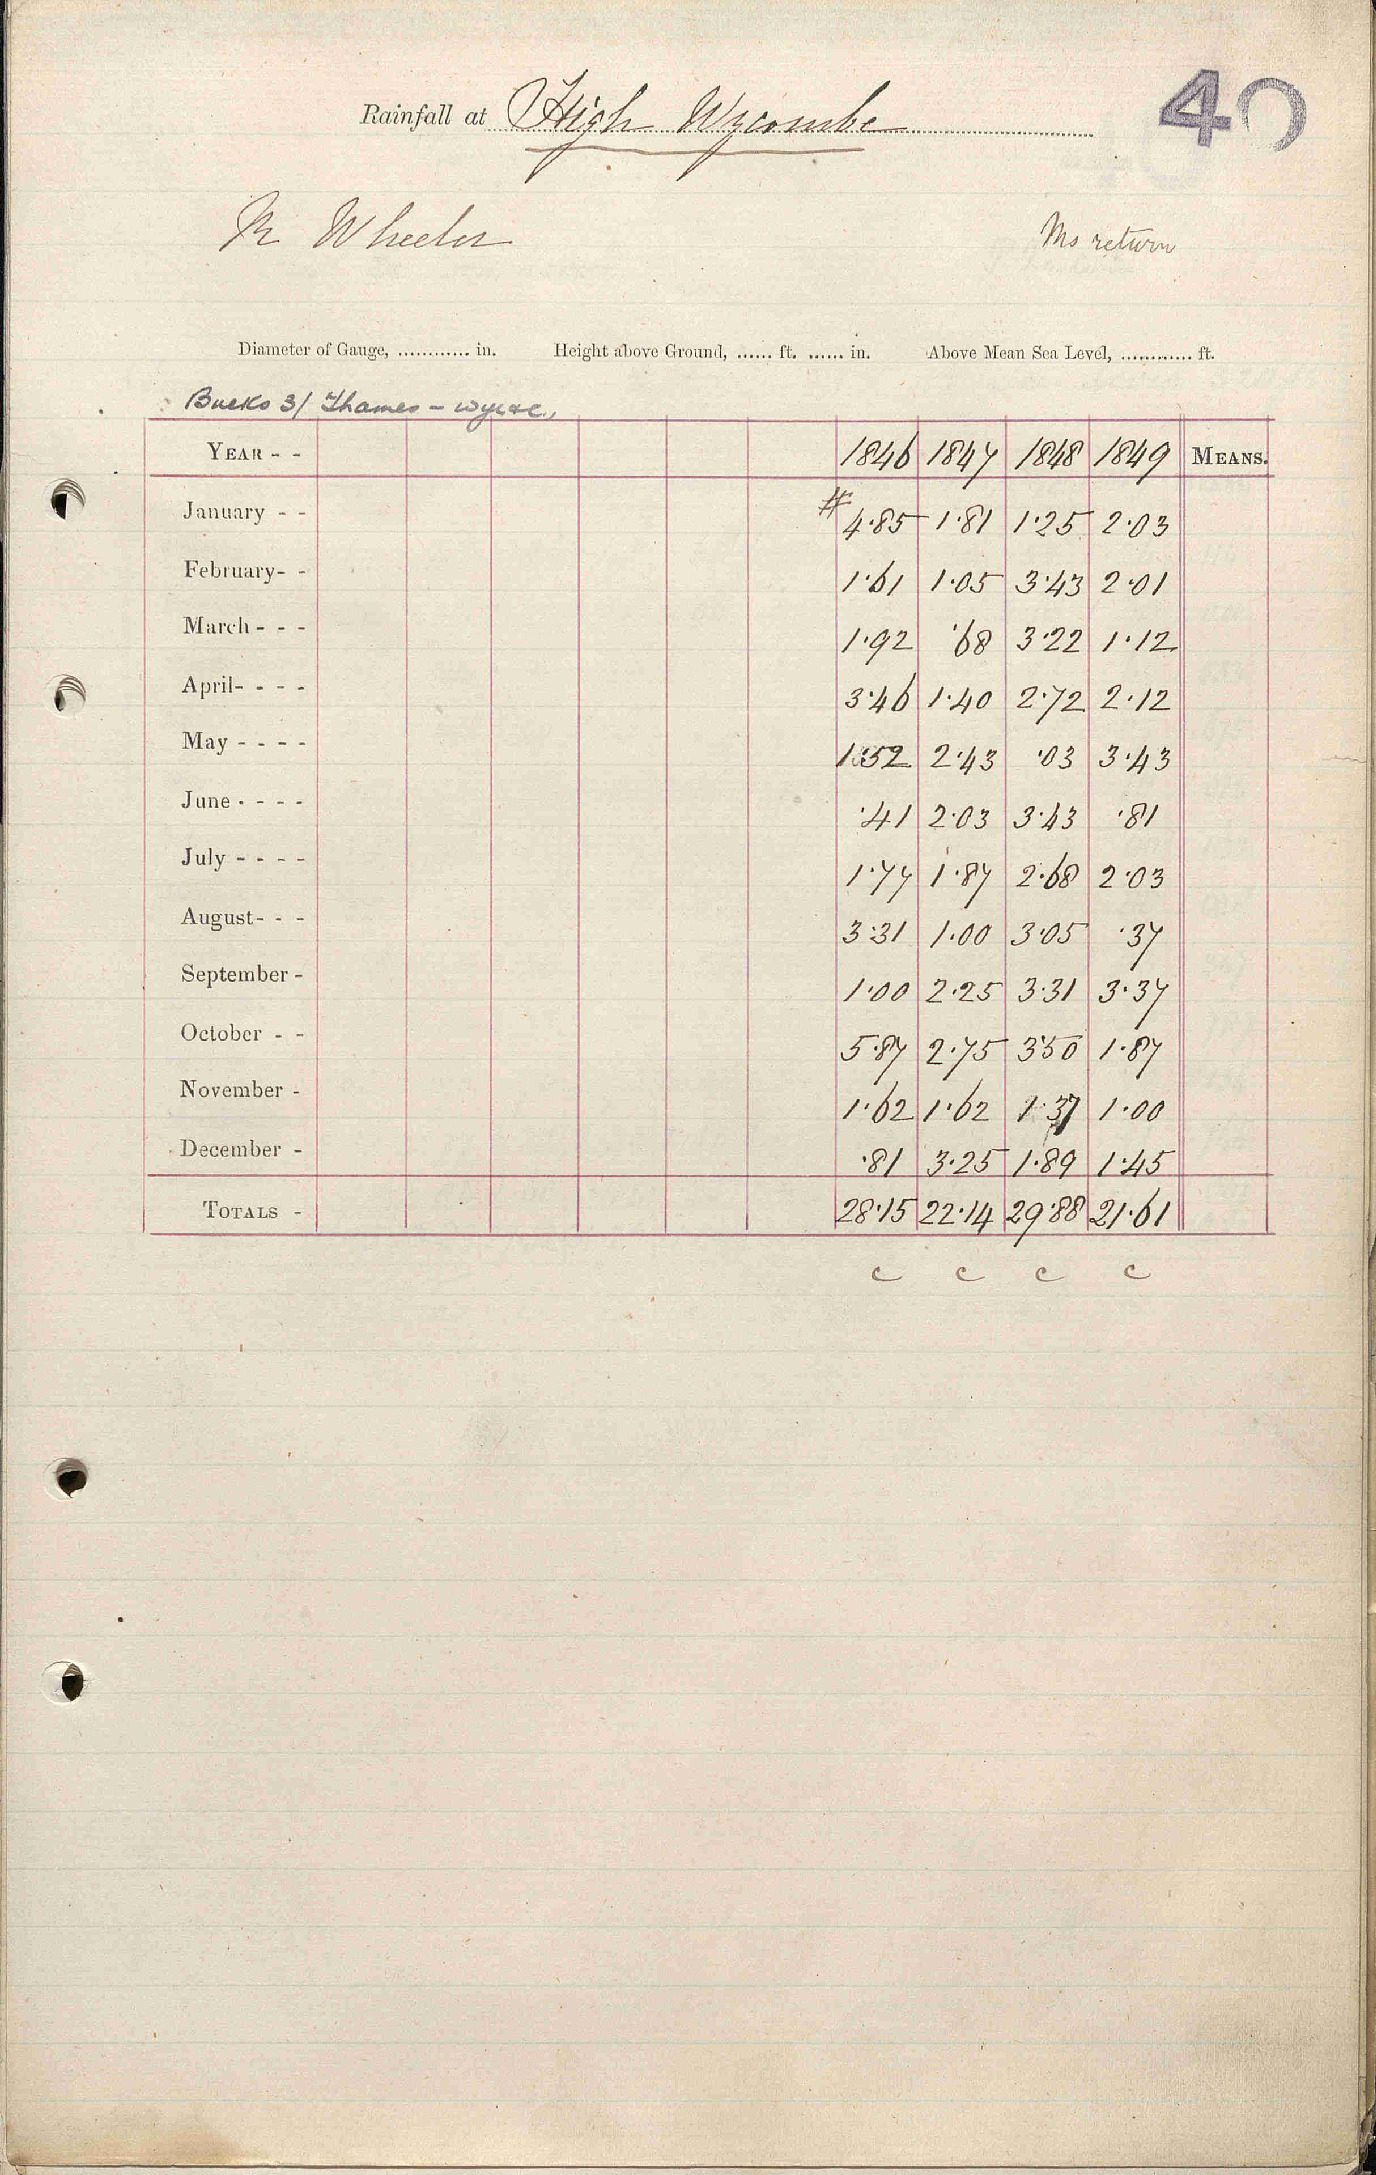 Rainfall at High Wycombe
40
Mr Wheeler
Ms return
Diameter of Gauge, ............ in. Height above Ground, ...... ft. ...... in. Above Mean Sea Level, ............ ft.
Bucks 3/ Thames - Wye &c.,
YEAR - - 1846 1847 1848 1849 MEANS.
January - - # 4·85 1·81 1·25 2·03
February- - 1·61 1·05 3·43 2·01
March - - - 1·92 ·68 3·22 1·12
April- - - - 3·46 1·40 2·72 2·12
May - - - - 1·52 2·43 ·03 3·43
June - - - - ·41 2·03 3·43 ·81
July - - - - 1·77 1·87 2·68 2·03
August- - - 3·31 1·00 3·05 ·37
September - 1·00 2·25 3·31 3·37
October - - 5·87 2·75 3·50 1·87
November - 1·62 1·62 1·37 1·00
December - ·81 3·25 1·89 1·45
TOTALS - 28·15 22·14 29·88 21·61
c c c c